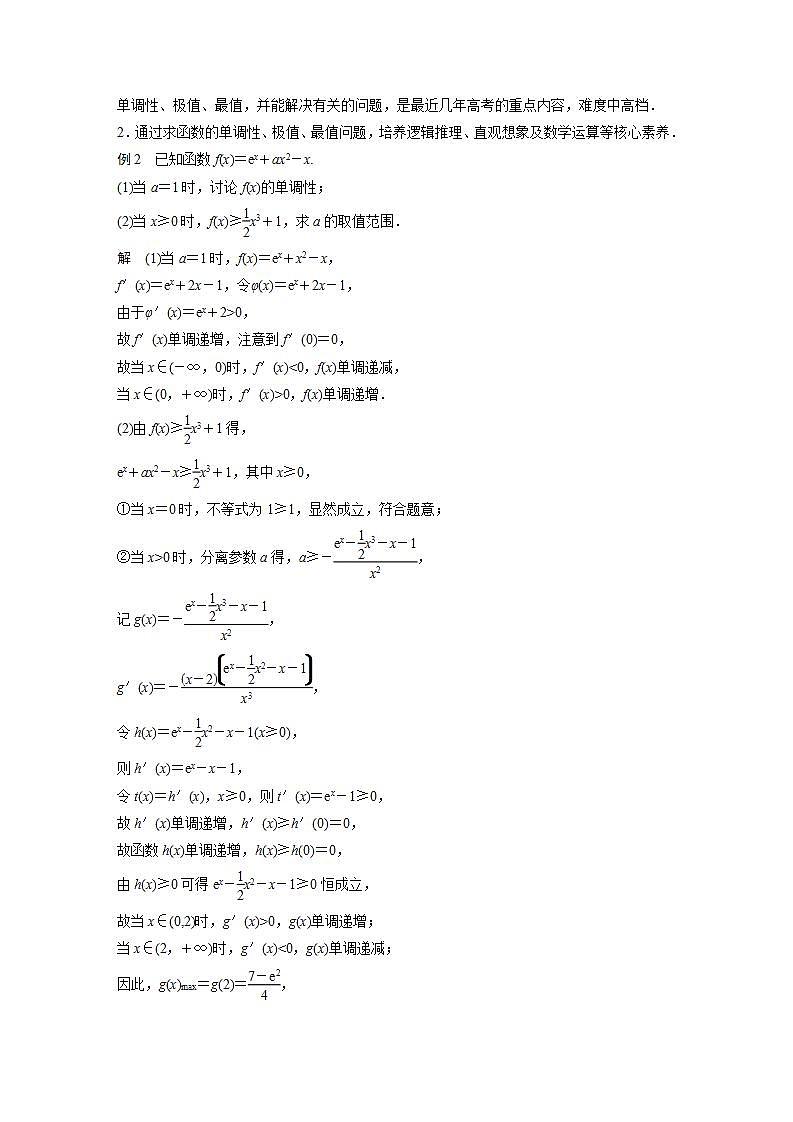 单调性、极值、最值，并能解决有关的问题，是最近几年高考的重点内容，难度中高档．
2．通过求函数的单调性、极值、最值问题，培养逻辑推理、直观想象及数学运算等核心素养．
例2　已知函数f(x)＝eˣ＋ax²－x.
(1)当a＝1时，讨论f(x)的单调性；
(2)当x≥0时，f(x)≥\frac{1}{2}x³＋1，求a的取值范围．
解　(1)当a＝1时，f(x)＝eˣ＋x²－x，
f′(x)＝eˣ＋2x－1，令φ(x)＝eˣ＋2x－1，
由于φ′(x)＝eˣ＋2>0，
故f′(x)单调递增，注意到f′(0)＝0，
故当x∈(－∞，0)时，f′(x)<0，f(x)单调递减，
当x∈(0，＋∞)时，f′(x)>0，f(x)单调递增．
(2)由f(x)≥\frac{1}{2}x³＋1得，
eˣ＋ax²－x≥\frac{1}{2}x³＋1，其中x≥0，
①当x＝0时，不等式为1≥1，显然成立，符合题意；
②当x>0时，分离参数a得，a≥－\frac{eˣ－\frac{1}{2}x³－x－1}{x²}，
记g(x)＝－\frac{eˣ－\frac{1}{2}x³－x－1}{x²}，
g′(x)＝－\frac{(x－2)(eˣ－\frac{1}{2}x²－x－1)}{x³}，
令h(x)＝eˣ－\frac{1}{2}x²－x－1(x≥0)，
则h′(x)＝eˣ－x－1，
令t(x)＝h′(x)，x≥0，则t′(x)＝eˣ－1≥0，
故h′(x)单调递增，h′(x)≥h′(0)＝0，
故函数h(x)单调递增，h(x)≥h(0)＝0，
由h(x)≥0可得eˣ－\frac{1}{2}x²－x－1≥0恒成立，
故当x∈(0,2)时，g′(x)>0，g(x)单调递增；
当x∈(2，＋∞)时，g′(x)<0，g(x)单调递减；
因此，g(x)max＝g(2)＝\frac{7－e²}{4}，